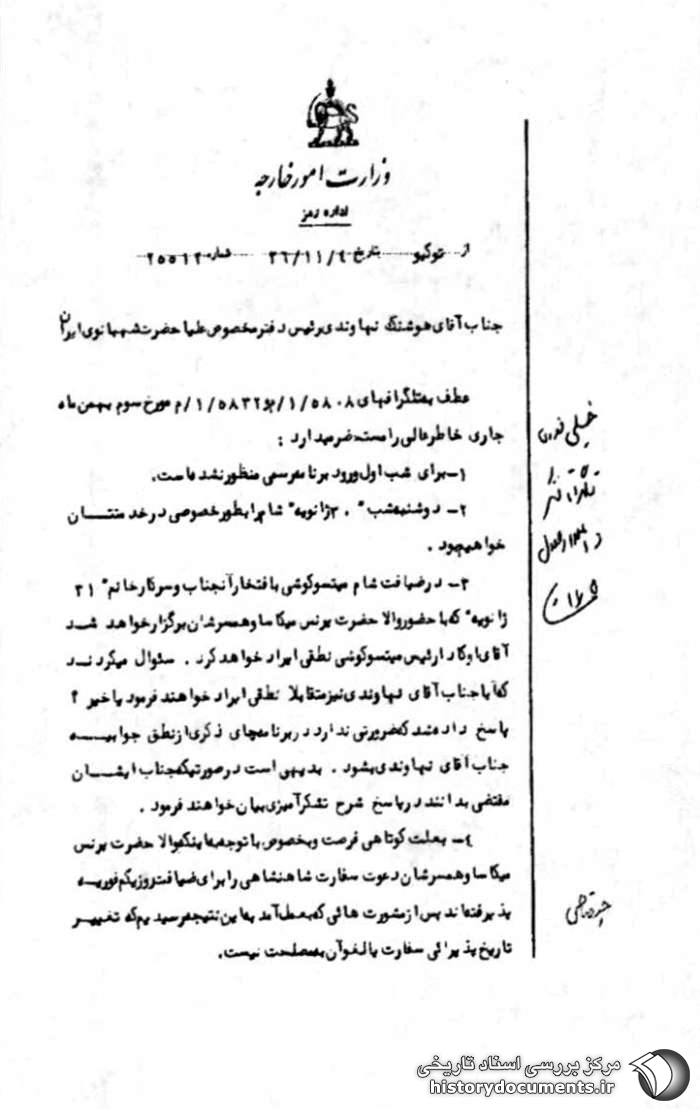 وزارت امور خارجه
اداره رمز
از توکیو بتاریخ ۳۶/۱۱/٤ شماره ۲۵۵۱۲
جناب آقای هوشنگ نهاوندی رئیس دفتر مخصوص علیا حضرت شهبانوی ایران
عطف بتلگرافهای ۱/۵۸۰۸/م و ۱/۵۸۳۲/م مورخ سوم بهمن ماه
جاری خاطر عالی را مستحضر میدارد :
۱- برای شب اول ورود برنامه رسمی منظور نشده است.
۲- دوشنبه شب " ۳۰ ژانویه" شام را بطور خصوصی در خدمتتان
خواهیم بود .
۳- در ضیافت شام میتسوکوشی با افتخار آنجناب و سرکار خانم " ۳۱
ژانویه" که با حضور والا حضرت پرنس میکاسا و همسرشان برگزار خواهد شد
آقای اوکادا رئیس میتسوکوشی نطقی ایراد خواهد کرد . سئوال میکردند
که آیا جناب آقای نهاوندی نیز متقابلا نطقی ایراد خواهند فرمود یا خیر ؟
پاسخ داده شد که ضرورتی ندارد در برنامه چاپی ذکری از نطق جوابیه
جناب آقای نهاوندی بشود . بدیهی است در صورتیکه جناب ایشان
مقتضی بدانند در پاسخ شرح تشکر آمیزی بیان خواهند فرمود .
٤- بعلت کوتاهی فرصت و بخصوص با توجه باینکه والا حضرت پرنس
میکاسا و همسرشان دعوت سفارت شاهنشاهی را برای ضیافت روز یکم فوریه
پذیرفته اند پس از مشورت هائی که بعمل آمد باین نتیجه رسیدیم که تغییر
تاریخ پذیرائی سفارت یا لغو آن بمصلحت نیست.
خیلی فوری
مرکز بررسی اسناد تاریخی
historydocuments.ir